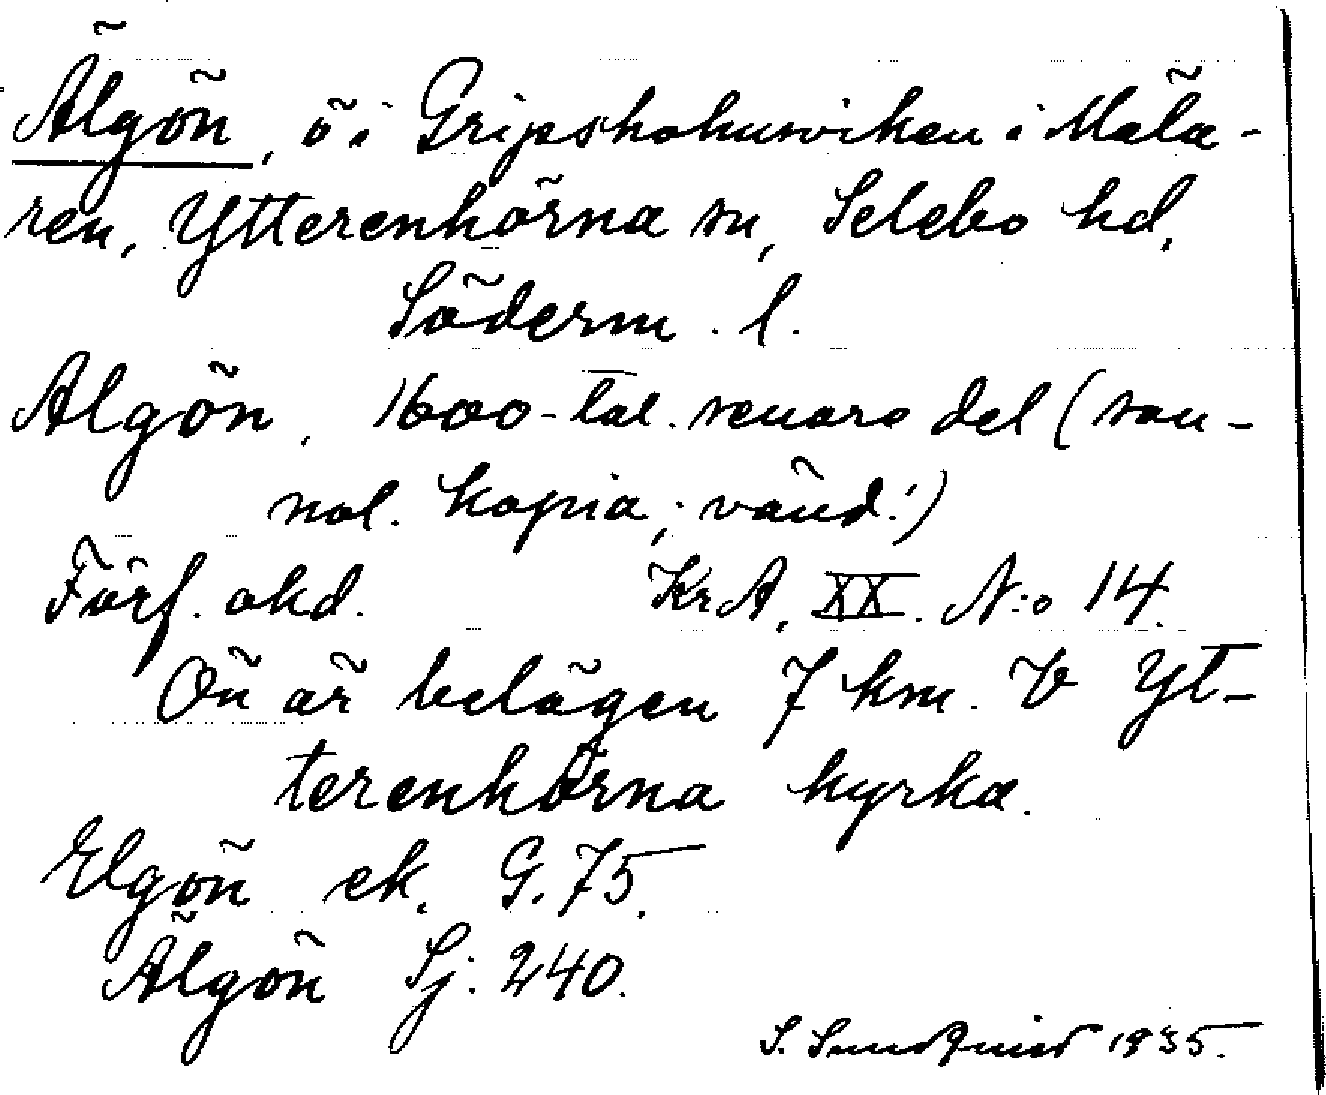 Älgön, ö i Gripsholmsviken i Mäla-
ren, Ytterenhörna sn, Selebo hd,
Söderm. l.
Algön, 1600-tal. senare del (san-
nol. kopia; vänd!)
Förf. okd. KrA, XX. N:o 14.
Ön är belägen 7 km. V Yt-
terenhörna kyrka.
Elgön ek. G. 75.
Älgön Sj: 240.
S. Sundqvist 1935.